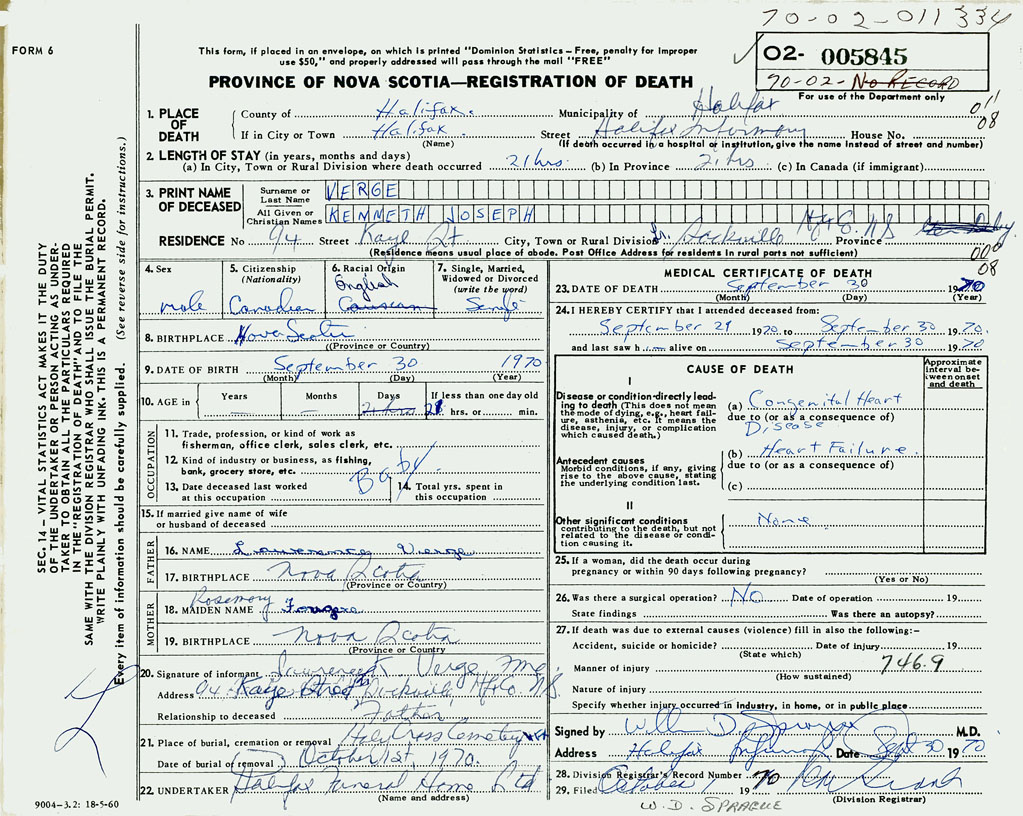 70-02-011334
FORM 6
This form, if placed in an envelope, on which is printed "Dominion Statistics – Free, penalty for improper
use $50," and properly addressed will pass through the mail "FREE"
02- 005845
70-02- No RECORD
PROVINCE OF NOVA SCOTIA—REGISTRATION OF DEATH
For use of the Department only
011
08
1. PLACE OF DEATH
County of Halifax. Municipality of Halifax
If in City or Town Halifax Street Halifax Infirmary House No.
(Name) (If death occurred in a hospital or institution, give the name instead of street and number)
2. LENGTH OF STAY (in years, months and days)
(a) In City, Town or Rural Division where death occurred 21 hrs. (b) In Province 21 hrs (c) In Canada (if immigrant)
3. PRINT NAME OF DECEASED
Surname or Last Name VERGE
All Given or Christian Names KENNETH JOSEPH
RESIDENCE No 94 Street Kaye St City, Town or Rural Division Sackville Province Hfx Co. NS
(Residence means usual place of abode. Post Office Address for residents in rural parts not sufficient)
000
08
4. Sex
male
5. Citizenship
(Nationality)
Canadian
6. Racial Origin
English
7. Single, Married,
Widowed or Divorced
(write the word)
Single
8. BIRTHPLACE Nova Scotia
(Province or Country)
9. DATE OF BIRTH September 30 1970
(Month) (Day) (Year)
10. AGE in
Years
Months
Days
If less than one day old
21 hrs. or min.
OCCUPATION
11. Trade, profession, or kind of work as
fisherman, office clerk, sales clerk, etc.
12. Kind of industry or business, as fishing,
bank, grocery store, etc.
Baby
13. Date deceased last worked
at this occupation
14. Total yrs. spent in
this occupation
15. If married give name of wife
or husband of deceased
FATHER
16. NAME Lawrence Verge
17. BIRTHPLACE Nova Scotia
(Province or Country)
MOTHER
18. MAIDEN NAME Rosemary Fougere
19. BIRTHPLACE Nova Scotia
(Province or Country
20. Signature of informant Lawrence Verge
Address 94 Kaye Street Sackville Hfx Co. N.S.
Relationship to deceased Father
21. Place of burial, cremation or removal Holy Cross Cemetery
Date of burial or removal October 1st, 1970.
22. UNDERTAKER Halifax Funeral Home Ltd
(Name and address)
MEDICAL CERTIFICATE OF DEATH
23. DATE OF DEATH September 30 1970
(Month) (Day) (Year)
24. I HEREBY CERTIFY that I attended deceased from:
September 29 1970 to September 30 1970.
and last saw him alive on September 30 1970
CAUSE OF DEATH
Approximate
interval be-
tween onset
and death
I
Disease or condition directly lead-
ing to death (This does not mean
the mode of dying, e.g., heart fail-
ure, asthenia, etc. It means the
disease, injury, or complication
which caused death.)
(a) Congenital Heart
due to (or as a consequence of)
Disease
Antecedent causes
Morbid conditions, if any, giving
rise to the above cause, stating
the underlying condition last.
(b) Heart Failure.
due to (or as a consequence of)
(c)
II
Other significant conditions
contributing to the death, but not
related to the disease or condi-
tion causing it.
None
25. If a woman, did the death occur during
pregnancy or within 90 days following pregnancy?
(Yes or No)
26. Was there a surgical operation? No Date of operation 19
State findings Was there an autopsy?
27. If death was due to external causes (violence) fill in also the following:—
Accident, suicide or homicide? Date of injury 19
(State which)
Manner of injury 746.9
(How sustained)
Nature of injury
Specify whether injury occurred in industry, in home, or in public place
Signed by William D. Sprague M.D.
Address Halifax Infirmary Date Sept 30 1970
28. Division Registrar's Record Number
29. Filed October 1 1970
(Division Registrar)
W. D. SPRAGUE
SEC. 14 – VITAL STATISTICS ACT MAKES IT THE DUTY
OF THE UNDERTAKER OR PERSON ACTING AS UNDER-
TAKER TO OBTAIN ALL THE PARTICULARS REQUIRED
IN THE "REGISTRATION OF DEATH" AND TO FILE THE
SAME WITH THE DIVISION REGISTRAR WHO SHALL ISSUE THE BURIAL PERMIT.
WRITE PLAINLY WITH UNFADING INK. THIS IS A PERMANENT RECORD.
Every item of information should be carefully supplied. (See reverse side for instructions.)
9004-3.2: 18-5-60